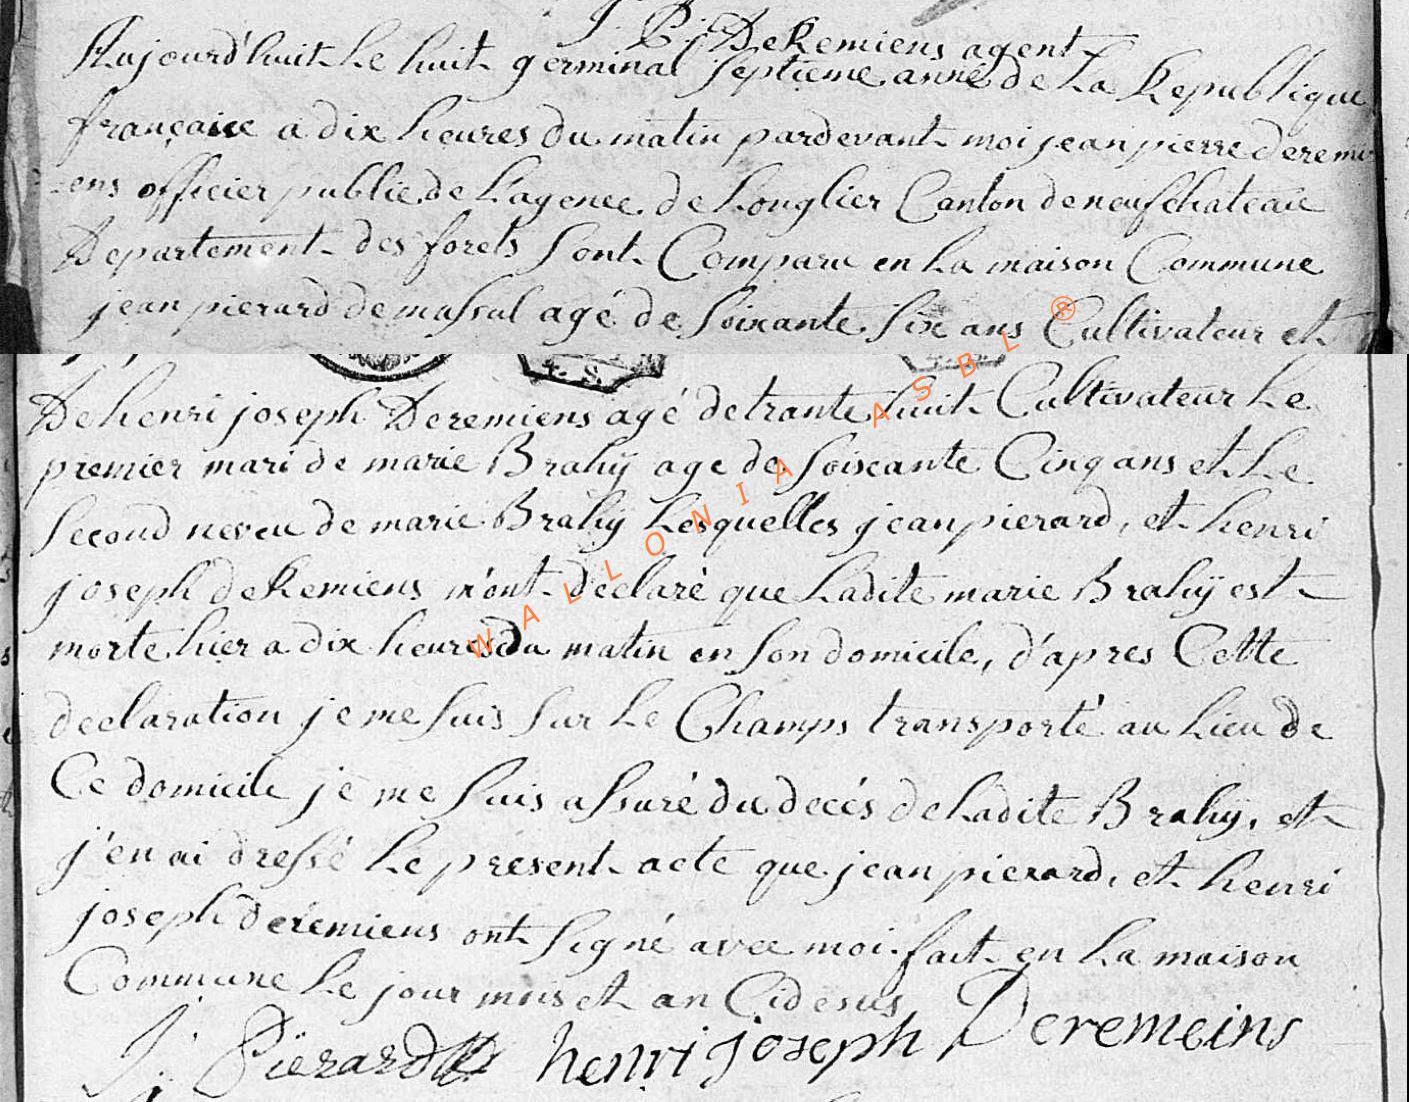 J. P. DeRemiens agent
Aujourd'huit le huit germinal septieme anné de La Republique
française a dix heures du matin pardevant moi jean pierre deremi
-ens officier public de L'agence de Longlier Canton de neufchateau
Departement des forets sont Comparu en La maison Commune
jean pierard de massul agé de soixante six ans Cultivateur et
T. S.
De henri joseph Deremiens agé de trante huit Cultivateur Le
premier mari de marie Brahÿ age de soixante Cinq ans et Le
second neveu de marie Brahÿ Lesquelles jean pierard, et henri
joseph deRemiens m'ont declaré que Ladite marie Brahÿ est
morte hier a dix heures du matin en son domicile, d'apres Cette
declaration je me suis sur Le Champs transporté au Lieu de
Ce domicile je me suis assuré du decés de Ladite Brahÿ, et
j'en ai dressé Le present acte que jean pierard, et henri
joseph deremiens ont signé avec moi. fait en La maison
Commune Le jour mois et an Cidesus
J. Piërard henri joseph Deremeins
WALLONIA ASBL ®